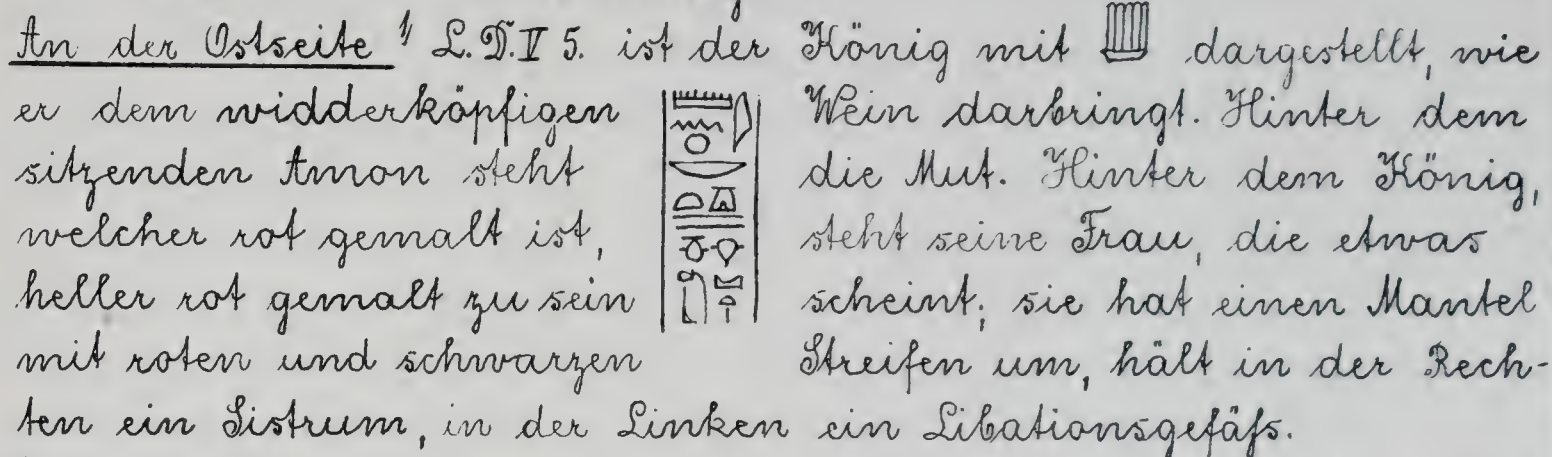 An der Ostseite 1) L.D.V 5. ist der König mit dargestellt, wie
er dem widderköpfigen Wein darbringt. Hinter dem
sitzenden Amon steht die Mut. Hinter dem König,
welcher rot gemalt ist, steht seine Frau, die etwas
heller rot gemalt zu sein scheint; sie hat einen Mantel
mit roten und schwarzen Streifen um, hält in der Rech-
ten ein Sistrum, in der Linken ein Libationsgefäfs.